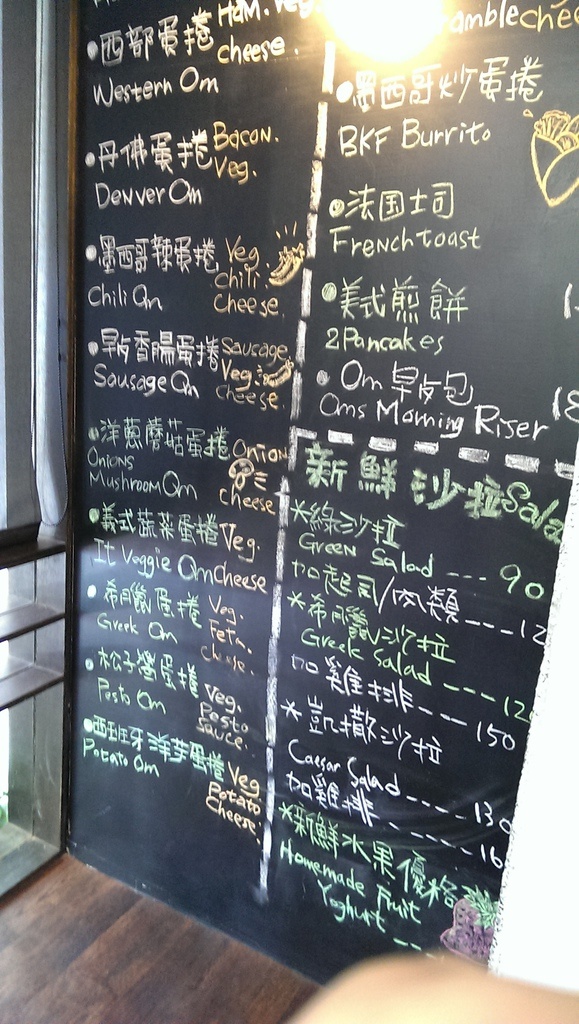 Ham. Veg.
•西部蛋捲 cheese.
Western Om
•丹佛蛋捲 Bacon.
Denver Om Veg.
•墨西哥辣蛋捲 Veg
Chili Om Chili
Cheese.
•早皮香腸蛋捲 Sausage
Sausage Om Veg.
cheese.
•洋蔥蘑菇蛋捲 Onion
Onions
Mushroom Om cheese
•義式蔬菜蛋捲 Veg.
It Veggie Om Cheese
•希臘蛋捲 Veg.
Greek Om Feta
Cheese.
•松子醬蛋捲 Veg.
Pesto Om Pesto
Sauce.
•西班牙洋芋蛋捲 Veg
Potato Om Potato
Cheese.
•墨西哥炒蛋捲
BKF Burrito
•法国土司
French toast
•美式煎餅
2 Pancakes
•Om早皮包
Oms Morning Riser
新鮮沙拉 Sala
*綠沙拉
Green Salad --- 90
加起司/肉類 ---
*希臘沙拉
Greek Salad ---
加雞排 --- 150
*凱撒沙拉
Caesar Salad ---- 130
加雞排 -----
*新鮮水果優格
Homemade Fruit
Yoghurt --